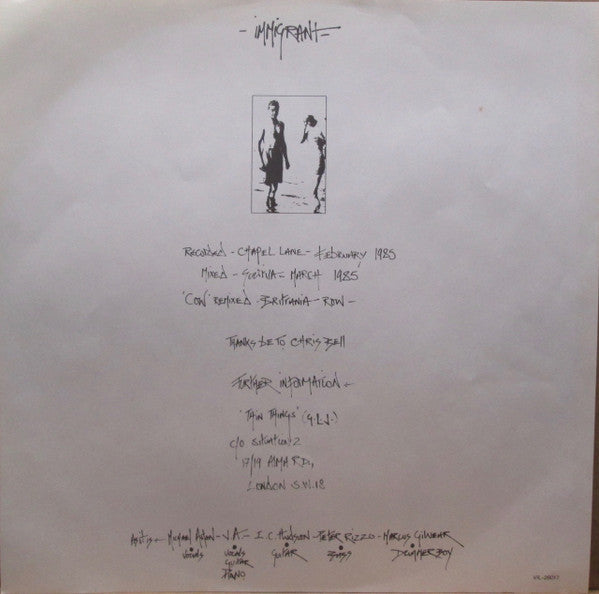 - IMMIGRANT -
RECORDED - CHAPEL LANE - FEBRUARY 1985
MIXED - GUERILLA - MARCH 1985
'COW' REMIXED - BRITTANIA - ROW -
THANKS BE TO CHRIS BELL
FURTHER INFORMATION -
'THIN THINGS' (G.L.J.)
C/O SITUATION 2
17/19 ALMA RD.,
LONDON S.W.18
AS IT IS - MICHAEL ASTON - J.A. - I.C. HUDSON - PETER RIZZO - MARCUS GILVEAR
VOCALS VOCALS GUITAR BASS DRUMMER BOY
GUITAR
PIANO
VIL-28017